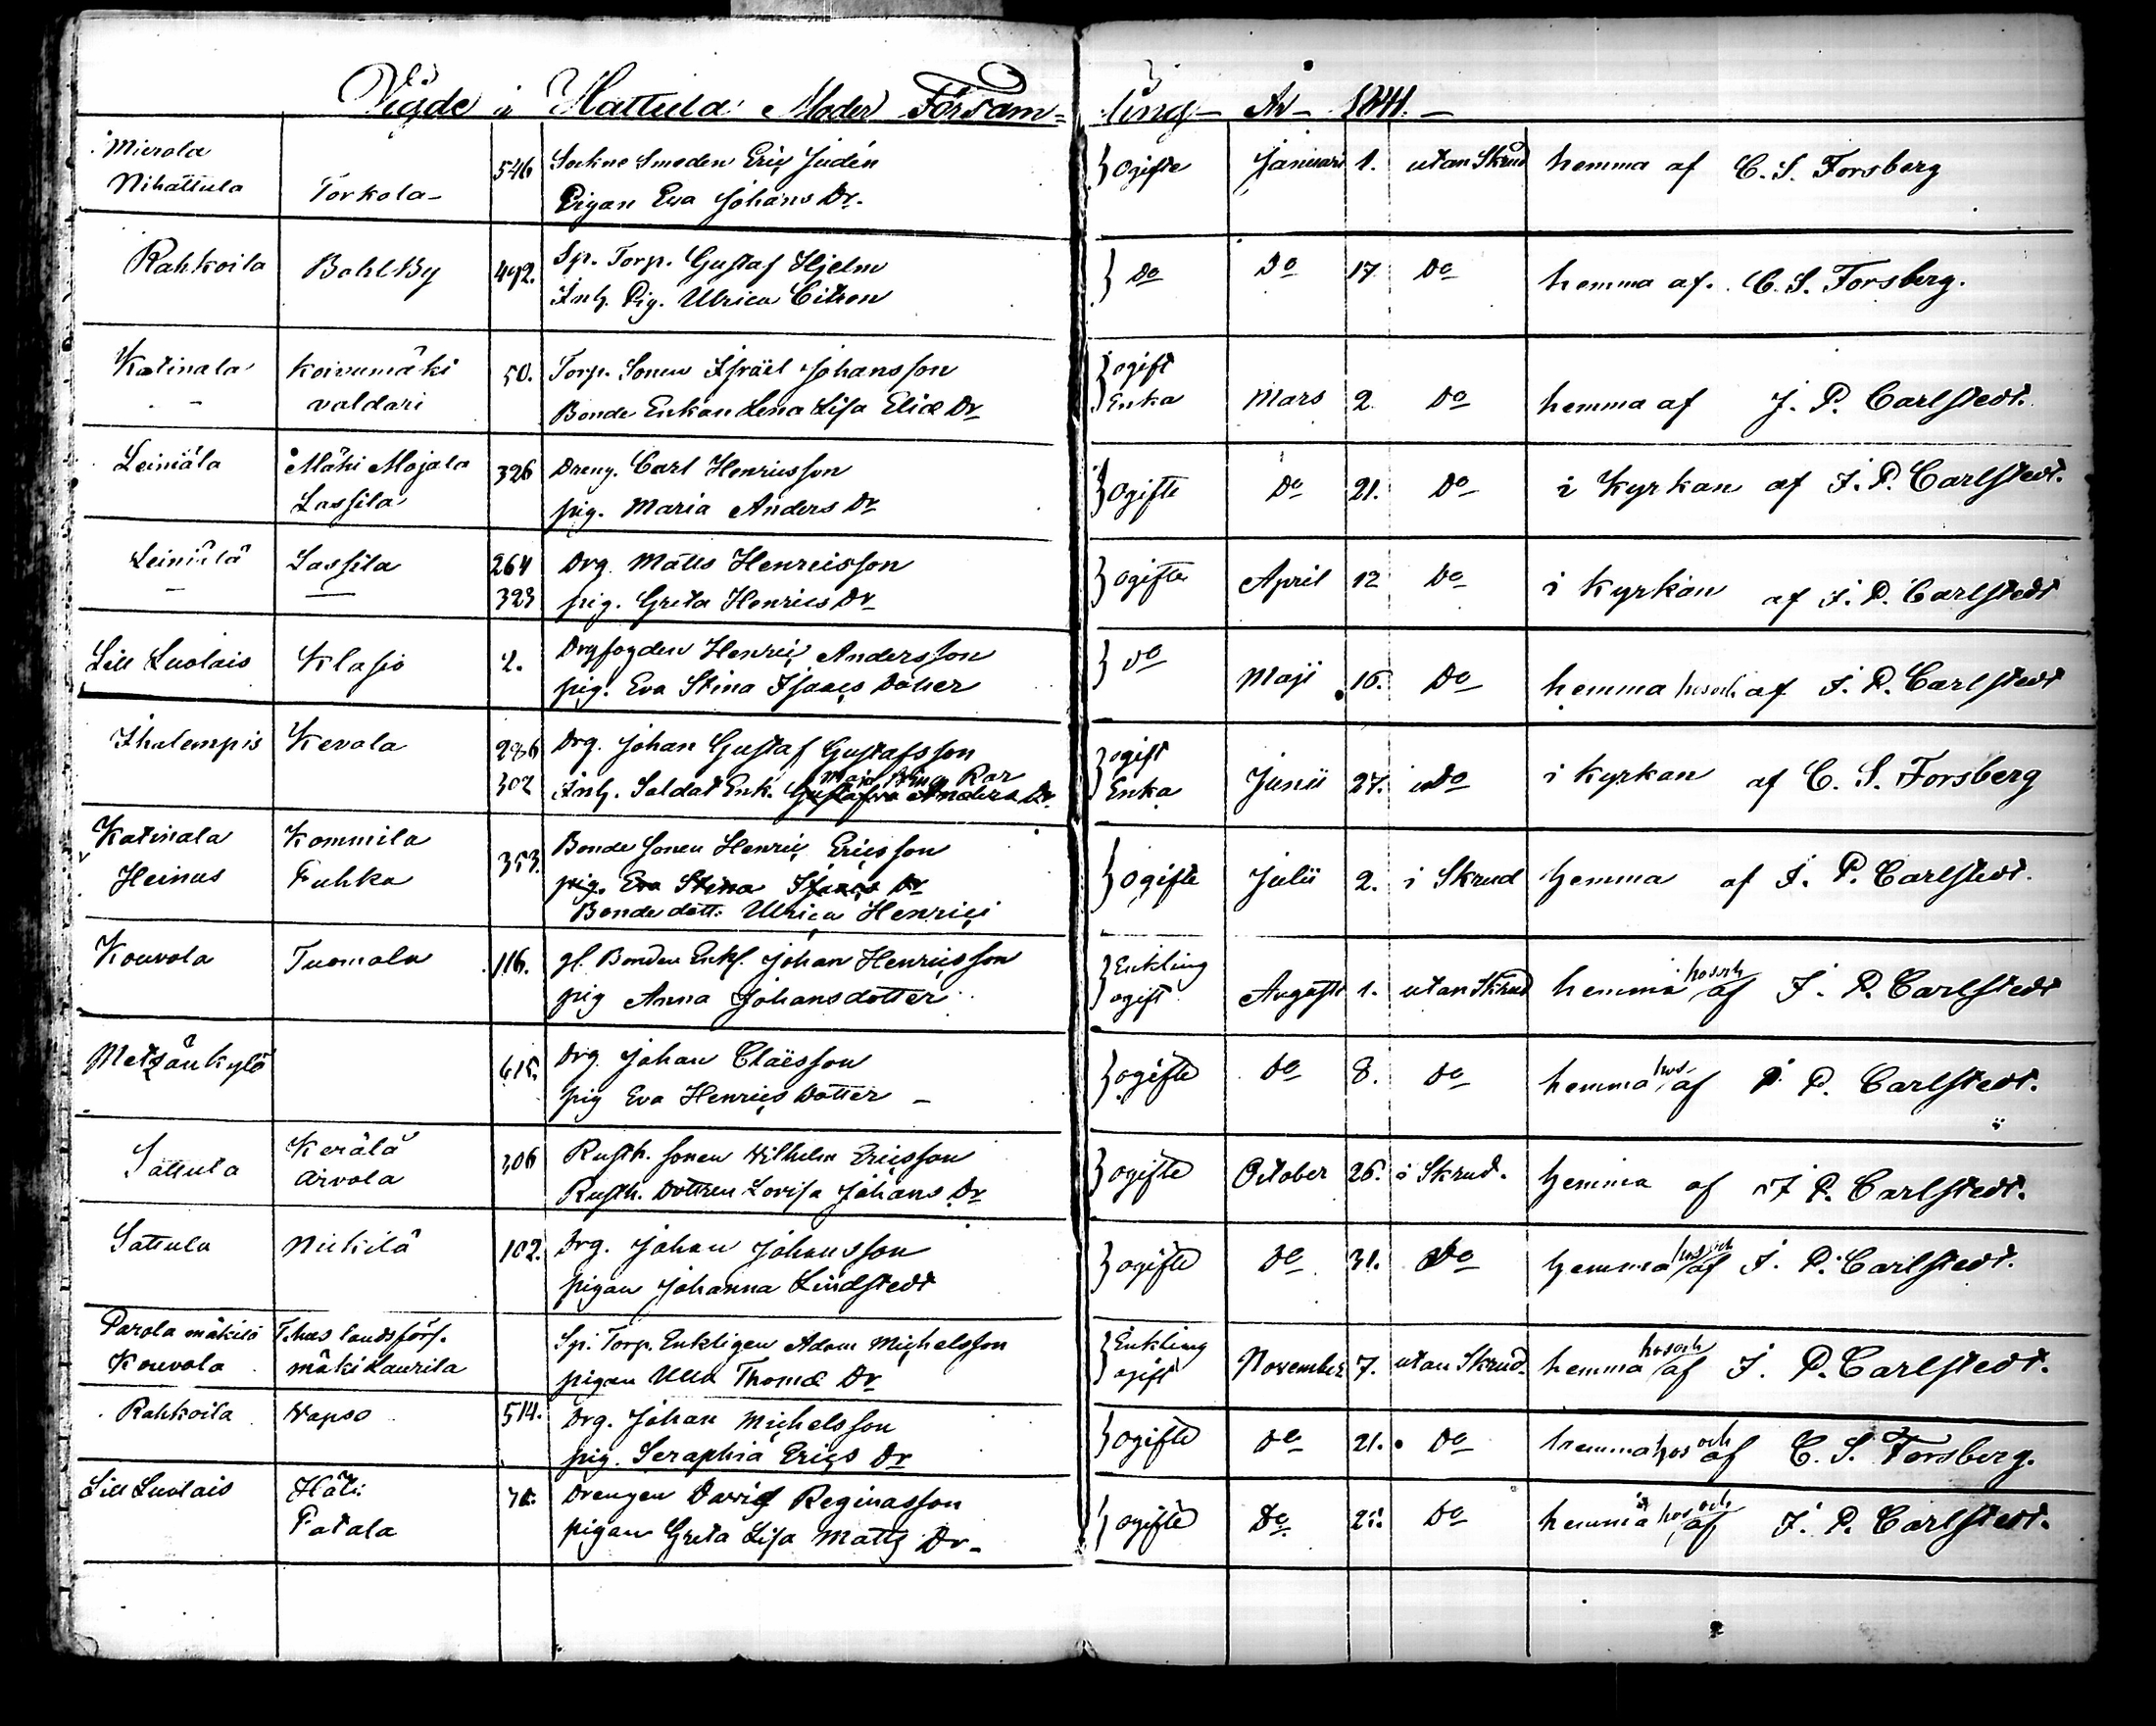 Vigde i Hattula Moder Försam= ling År 1841.
Mierola 546 Sockne Smeden Eric Judén } Ogifte Januari 1. utan Skrud hemma af C. S. Forsberg
Nihattula Torkola Pigan Eva Johans Dr.
Rahkoila Bohlby 492. Sp. Torp. Gustaf Hjelm } Do Do 17 Do hemma af C. S. Forsberg.
Inh. Pig. Ulrica Citron
Katinala Koivumäki 50. Torp. Sonen Israël Johansson } ogift
- - valdari Bonde Enkan Lena Lisa Eliæ Dr Enka Mars 2. Do hemma af J. P. Carlstedt.
Leiniälä Mäki Majala 326 Dreng. Carl Henricsson } Ogifte Do 21. Do i Kyrkan af J. P. Carlstedt.
Lassila pig. Maria Anders Dr
Leiniälä Lassila 264 Drg. Matts Henricsson } ogifte April 12 Do i Kyrkan af J. P. Carlstedt
- — 323 pig. Greta Henrics Dr
Lill Luolais Klasio 2. Drgfogden Henric Andersson } Do Maji 16. Do hemma hos och af J. P. Carlstedt
pig. Eva Stina Isaacs Dotter
Ihalempis Kerola 286 Drg. Johan Gustaf Gustafsson } ogift
302 Inh. Soldat Enk. Maja Stina Ror Gustafva Anders Dr. Enka Junii 27. Do i Kyrkan af C. S. Forsberg
Katinala Kommila 353. Bonde Sonen Henric Ericsson } ogifte Julii 2. i Skrud hemma af J. P. Carlstedt.
Heinus Fuhka pig. Eva Stina Isaacs Dr
Bonde dott. Ulrica Henrici
Kouvola Tuomola 116. gl. Bonden Enkl. Johan Henricsson } Enkling
pig Anna Johansdotter ogift Augusti 1. utan Skrud hemma hos och af J. P. Carlstedt
Metzänkylö 615. Drg. Johan Claësson } ogifte Do 8. Do hemma hos af J. P. Carlstedt.
pig Eva Henrics Dotter -
Sattula Kerälä 306 Rusth. sonen Wilhelm Ericsson } ogifte October 26. i Skrud. hemma af J. P. Carlstedt.
Arvola Rusth. Dottren Lovisa Johans Dr
Sattula Nickilä 102. Drg. Johan Johansson } ogifte Do 31. Do hemma hos och af J. P. Carlstedt.
pigan Johanna Lindstedt
Parola mäkilä T.hus landsförs. Sp. Torp. Enklingen Adam Michelsson } Enkling
Kouvola mäki Laurila pigan Ulla Thomæ Dr ogift November 7. utan Skrud. hemma hos och af J. P. Carlstedt.
Rahkoila Wapso 514. Drg. Johan Michelsson } ogifte Do 21. Do hemma hos och af C. S. Forsberg.
pig. Seraphia Erics Dr
Lill Luolais Häti Drengen David Reginasson } ogifte Do Do hemma hos och af J. P. Carlstedt.
Patala pigan Greta Lisa Matts Dr -